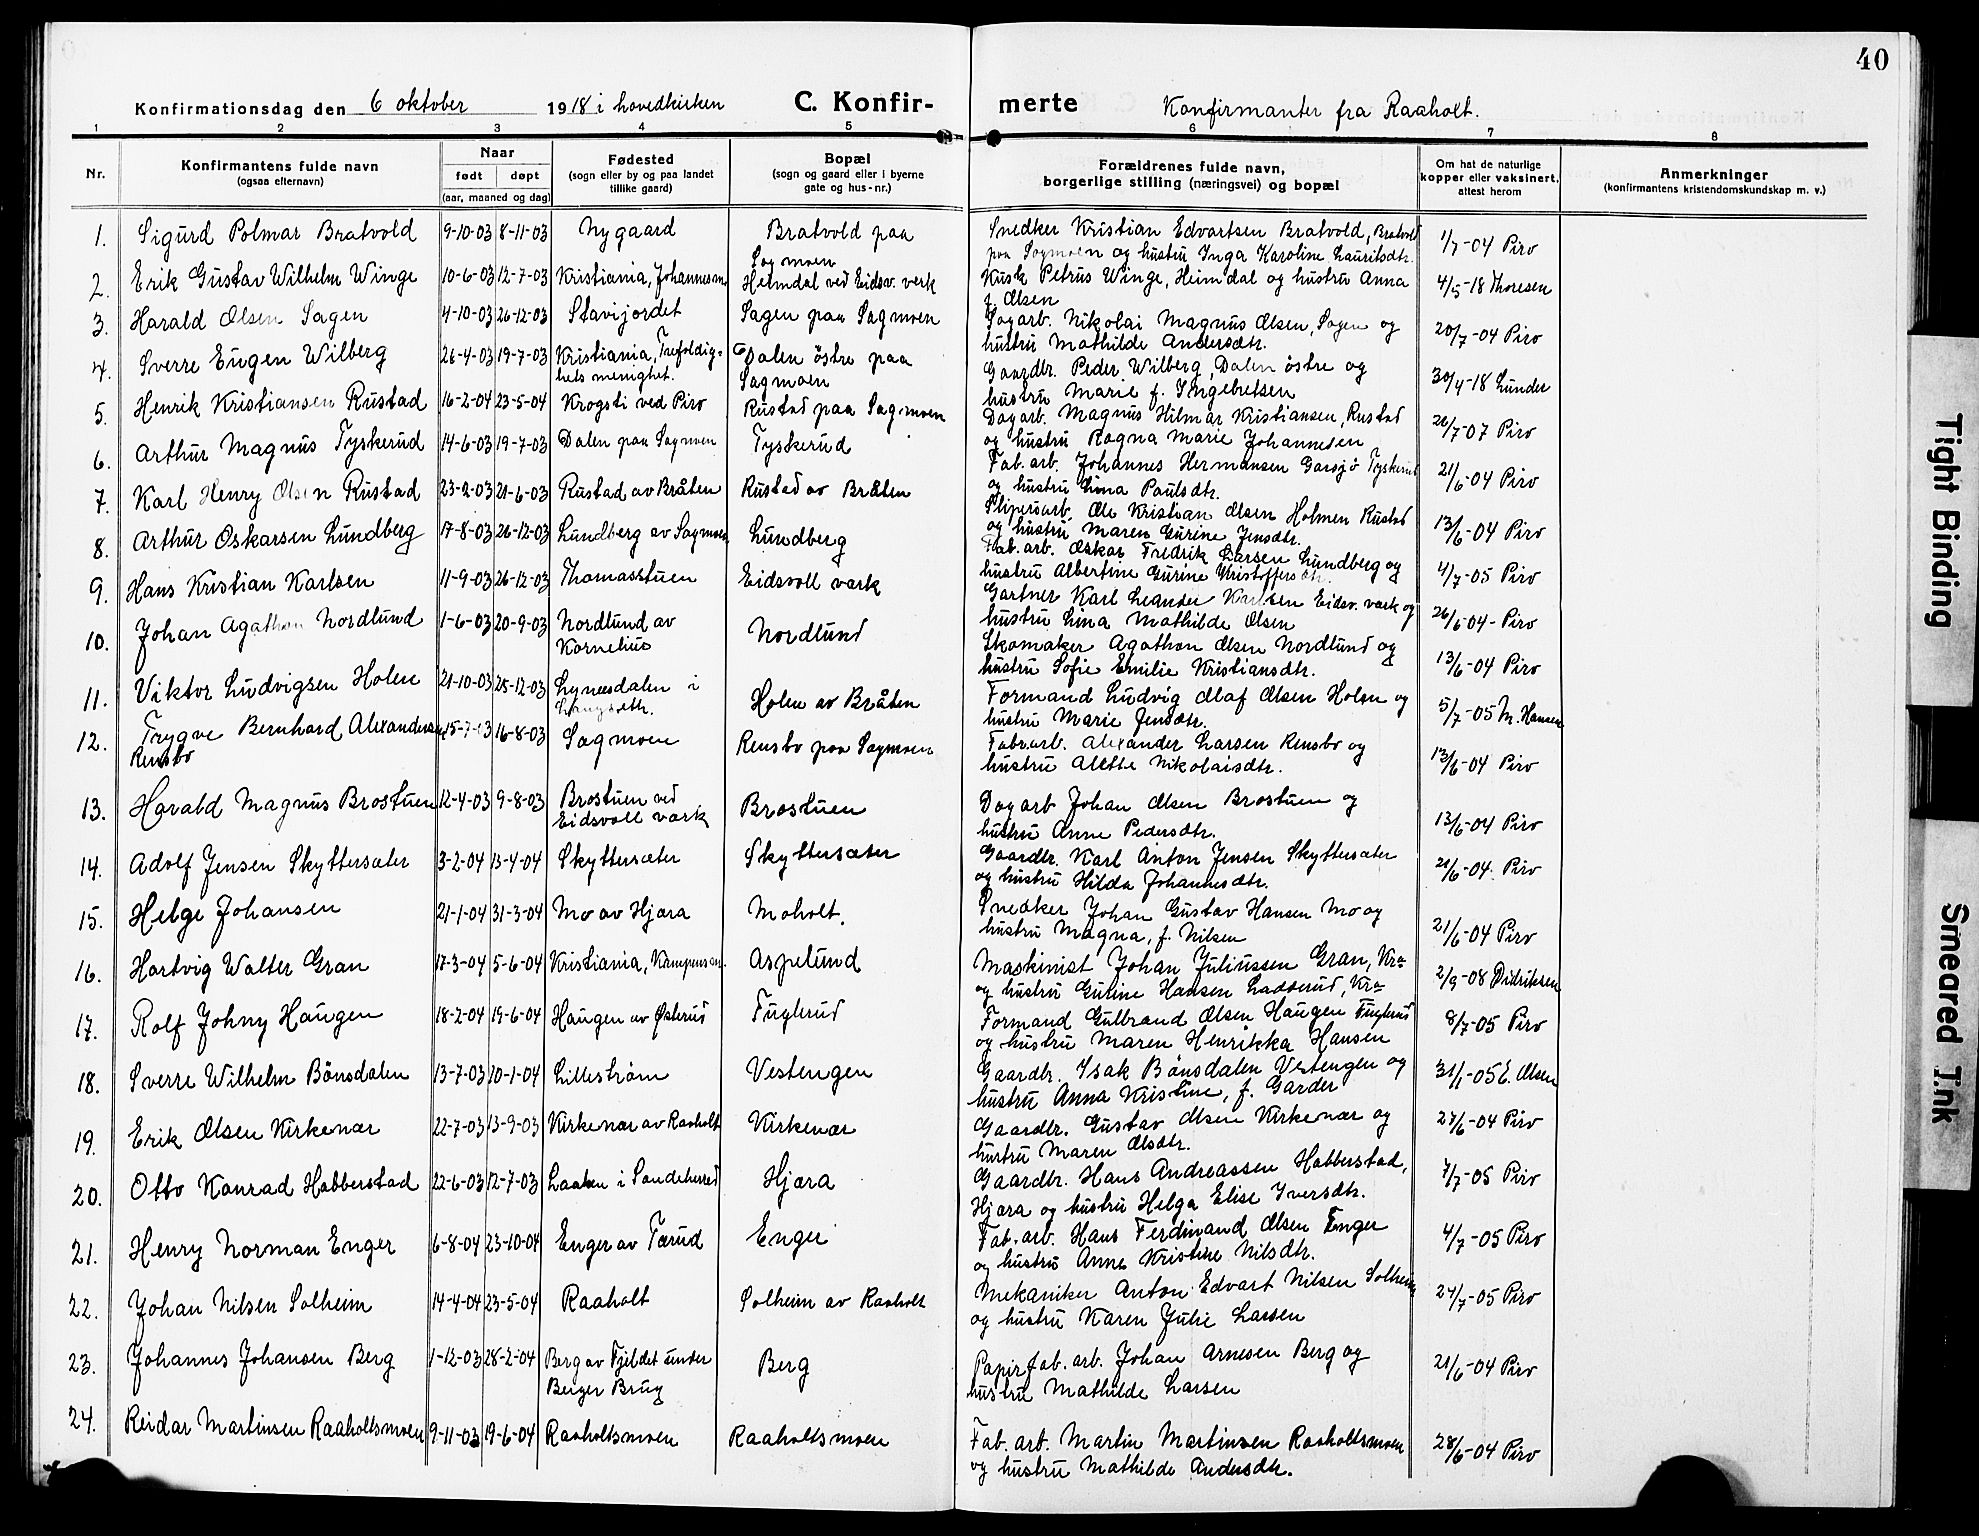 40
Konfirmationsdag den 6 oktober 1918 i hovedkirken C. Konfir- merte Konfirmanter fra Raaholt.
1 2 3 4 5 6 7 8
Nr. Konfirmantens fulde navn (ogsaa efternavn) Naar født døpt (aar, maaned og dag) Fødested (sogn eller by og paa landet tillike gaard) Bopæl (sogn og gaard eller i byerne gate og hus-nr.) Forældrenes fulde navn, borgerlige stilling (næringsvei) og bopæl Om hat de naturlige kopper eller vaksinert, attest herom Anmerkninger (konfirmantens kristendomskundskap m. v.)
1. Sigurd Polmar Bratvold 9-10-03 8-11-03 Nygaard Bratvold paa Sagmoen Snedker Kristian Edvartsen Bratvold, Bratvold 1/7-04 Piro
paa Sagmoen og hustru Inga Karoline Lauritsdtr.
2. Erik Gustav Wilhelm Winge 10-6-03 12-7-03 Kristiania, Johannesmen Heimdal ved Eidsv. verk Kusk Petrus Winge, Heimdal og hustru Anna 4/5-18 Thoresen
f. Olsen
3. Harald Olsen Sagen 4-10-03 26-12-03 Stavijordet Sagen paa Sagmoen Sagarb. Nikolai Magnus Olsen, Sagen og 20/7-04 Piro
hustru Mathilde Andersdtr.
4. Sverre Eugen Wilberg 26-4-03 19-7-03 Kristiania, Trefoldig- Dalen østre paa Gaardbr. Peder Wilberg, Dalen østre og 30/4-18 Lunder
hets menighet. Sagmoen hustru Marie f. Ingebretsen
5. Henrik Kristiansen Rustad 16-2-04 23-5-04 Krogsti ved Piro Rustad paa Sagmoen Dagarb. Magnus Hilmar Kristiansen, Rustad 20/7-07 Piro
og hustru Ragna Marie Johannesen
6. Arthur Magnus Tyskerud 14-6-03 19-7-03 Dalen paa Sagmoen Tyskerud Fab. arb. Johannes Hermansen Garsjø Tyskerud 21/6-04 Piro
og hustru Lina Paulsdtr.
7. Karl Henry Olsen Rustad 23-2-03 21-6-03 Rustad av Bråten Rustad av Bråten Slipersarb. Ole Kristian Olsen Holmen Rustad 13/6-04 Piro
og hustru Maren Gurine Jensdtr.
8. Arthur Oskarsen Lundberg 17-8-03 26-12-03 Lundberg av Sagmoen Lundberg Fab. arb. Oskar Fredrik Larsen Lundberg og 4/7-05 Piro
hustru Albertine Gurine Kristoffersdtr.
9. Hans Kristian Karlsen 11-9-03 26-12-03 Thomasstuen Eidsvoll værk Gartner Karl Leander Karlsen Eidsv. værk og 26/6-04 - Piro
hustru Lina Mathilde Olsen
10. Johan Agathon Nordlund 1-6-03 20-9-03 Nordlund av Nordlund Skomaker Agathon Olsen Nordlund og 13/6-04 Piro
Kornelius hustru Sofie Emilie Kristiansdtr.
11. Viktor Ludvigsen Holen 21-10-03 25-12-03 Lynesdalen i Holen av Bråten Formand Ludvig Olaf Olsen Holen og 5/7-05 M. Hansen
hustru Marie Jensdtr.
12. Trygve Bernhard Alexandersen 15-7-03 16-8-03 Sagmoen Rensbo paa Sagmoen Fabr.arb. Alexander Larsen Rensbo og 13/6-04 Piro
Rensbo hustru Alette Nikolaisdtr.
13. Harald Magnus Brostuen 12-4-03 9-8-03 Brostuen ved Brostuen Dagarb Johan Olsen Brostuen og 13/6-04 Piro
Eidsvoll værk hustru Anne Pedersdtr.
14. Adolf Jensen Skyttersæter 3-2-04 13-4-04 Skyttersæter Skyttersæter Gaardbr. Karl Anton Jensen Skyttersæter 21/6-04. Piro
og hustru Hilda Johannesdtr.
15. Helge Johansen 21-1-04 31-3-04 Mo av Hjæra Moholt. Snedker Johan Gustav Hansen Mo og 21/6-04 Piro
hustru Magna, f. Nilsen
16. Hartvig Walter Gran 17-3-04 5-6-04 Kristiania, Kampens m. Aspelund Maskinist Johan Juliussen Gran, Kra 2/9-08 Didriksen
og hustru Guline Hansen Ladderud, Kra
17. Rolf Johny Haugen 18-2-04 19-6-04 Haugen av Østerud Fuglerud Formand Gulbrand Olsen Haugen Fuglerud 8/7-05 Piro
og hustru Maren Henrikka Hansen
18. Sverre Wilhelm Bönsdalen 13-7-03 10-1-04 Lillestrøm Vestengen Gaardbr. Isak Bönsdalen Vestengen og 31/1-05 E. Olsen
hustru Anna Kristine, f. Garder
19. Erik Olsen Kirkenær 22-7-03 13-9-03 Kirkenær av Raaholt Kirkenær Gaardbr. Gustav Olsen Kirkenær og 27/6-04 Piro
hustru Maren Olsdtr.
20. Otto Konrad Habberstad 22-6-03 12-7-03 Laaken i Sandeherred Hjæra Gaardbr. Hans Andreassen Habberstad, 7/7-05 Piro
Hjæra og hustru Helga Elise Iversdtr.
21. Henry Norman Enger 6-8-04 23-10-04 Enger av Tærud Enger Fab. arb. Hans Ferdinand Olsen Enger 4/7-05 Piro
og hustru Anne Kristine Nilsdtr.
22. Johan Nilsen Solheim 14-4-04 23-5-04 Raaholt Solheim av Raaholt Mekaniker Anton Edvart Nilsen Solheim 24/7-05 Piro
og hustru Karen Julie Larsen
23. Johannes Johansen Berg 1-12-03 28-2-04 Berg av Fjeldet under Berg Papirfab. arb. Johan Arnesen Berg og 21/6-04 Piro
Berger Brug hustru Mathilde Larsen
24. Reidar Martinsen Raaholtsmoen 9-11-03 19-6-04 Raaholtsmoen Raaholtsmoen Fab. arb. Martin Martinsen Raaholtsmoen 28/6-04 Piro
og hustru Mathilde Andersdtr.
Tight Binding
Smeared Ink